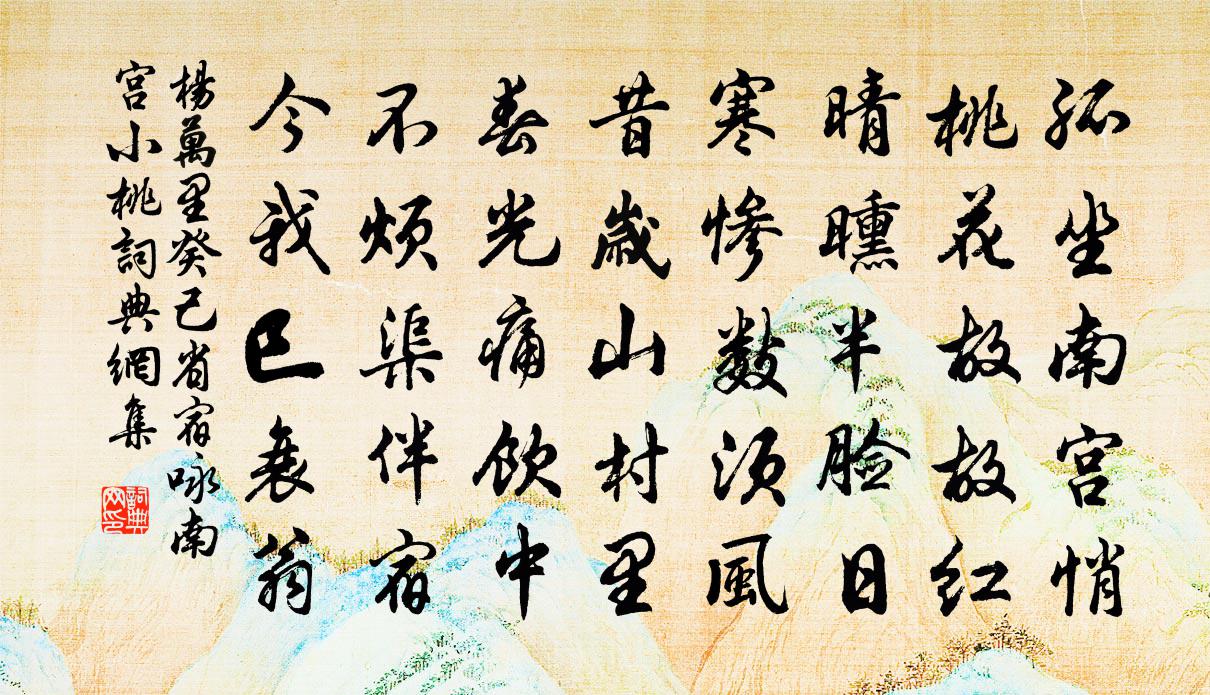 孤坐南宫悄
桃花故故红
晴曛半脸日
寒惨数须風
昔歲山村里
春光痛飲中
不烦渠伴宿
今我已衰翁
楊萬里癸已省宿咏南
宫小桃詞典網集
詞典网印